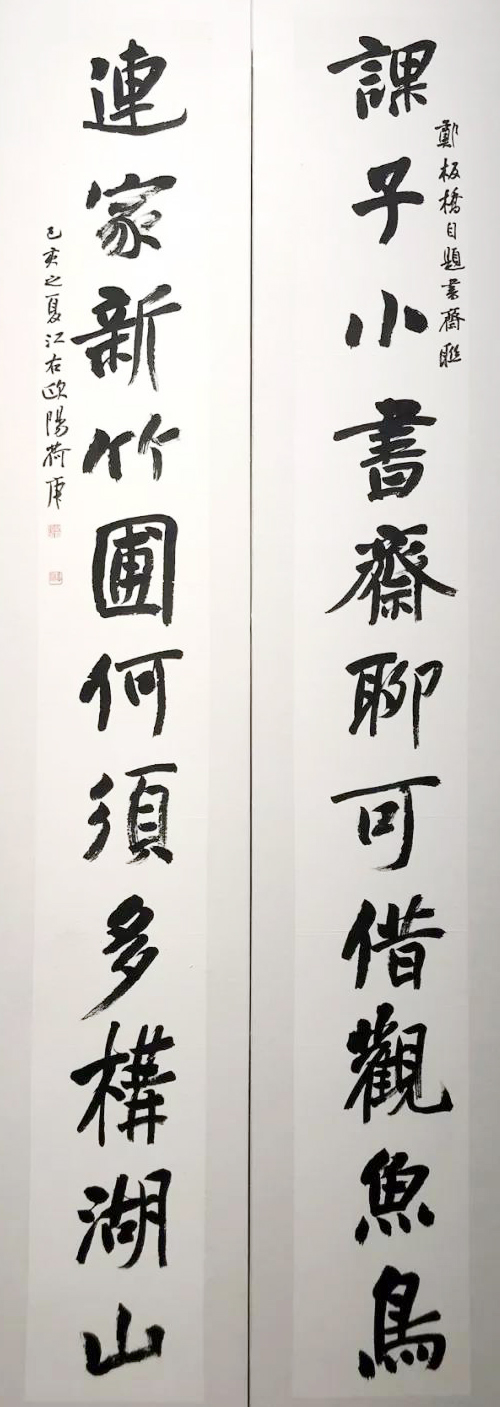 鄭板橋自題書齋聯
課子小書齋聊可借觀魚鳥
連家新竹圃何須多構湖山
己亥之夏江右歐陽荷庚